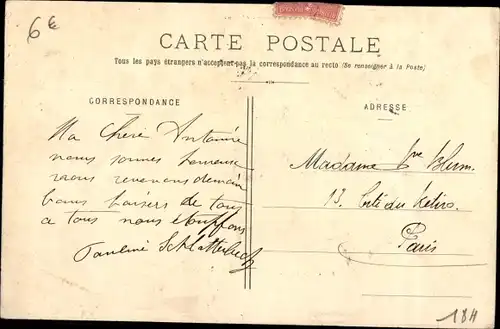 6€
CARTE POSTALE
Tous les pays étrangers n'acceptent pas la correspondance au recto (Se renseigner à la Poste)
CORRESPONDANCE
ADRESSE
Ma Chère
nous sommes heureuse
nous revenons demain
bons baisers de tous
a tous nous étouffons
Pauline
Madame Vve Blum
13. Cité du Retiro.
Paris
184